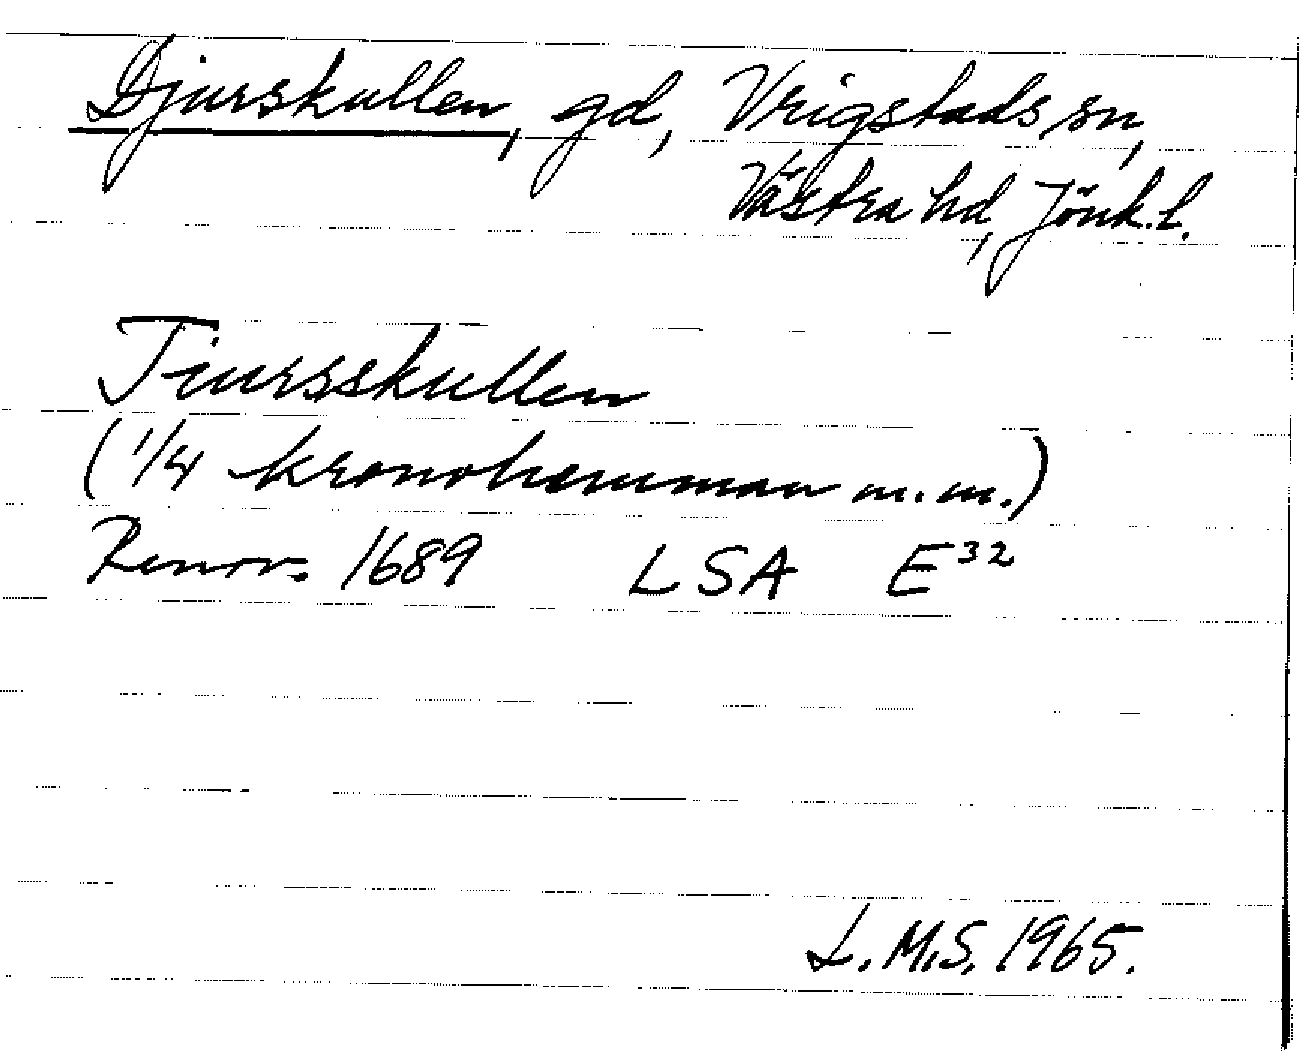 Djurskullen, gd, Vrigstads sn,
Västra hd, Jönk. l.
Tiursskullen
(1/4 kronohemman m.m.)
Renov. 1689 LSA E³²
L.M.S. 1965.